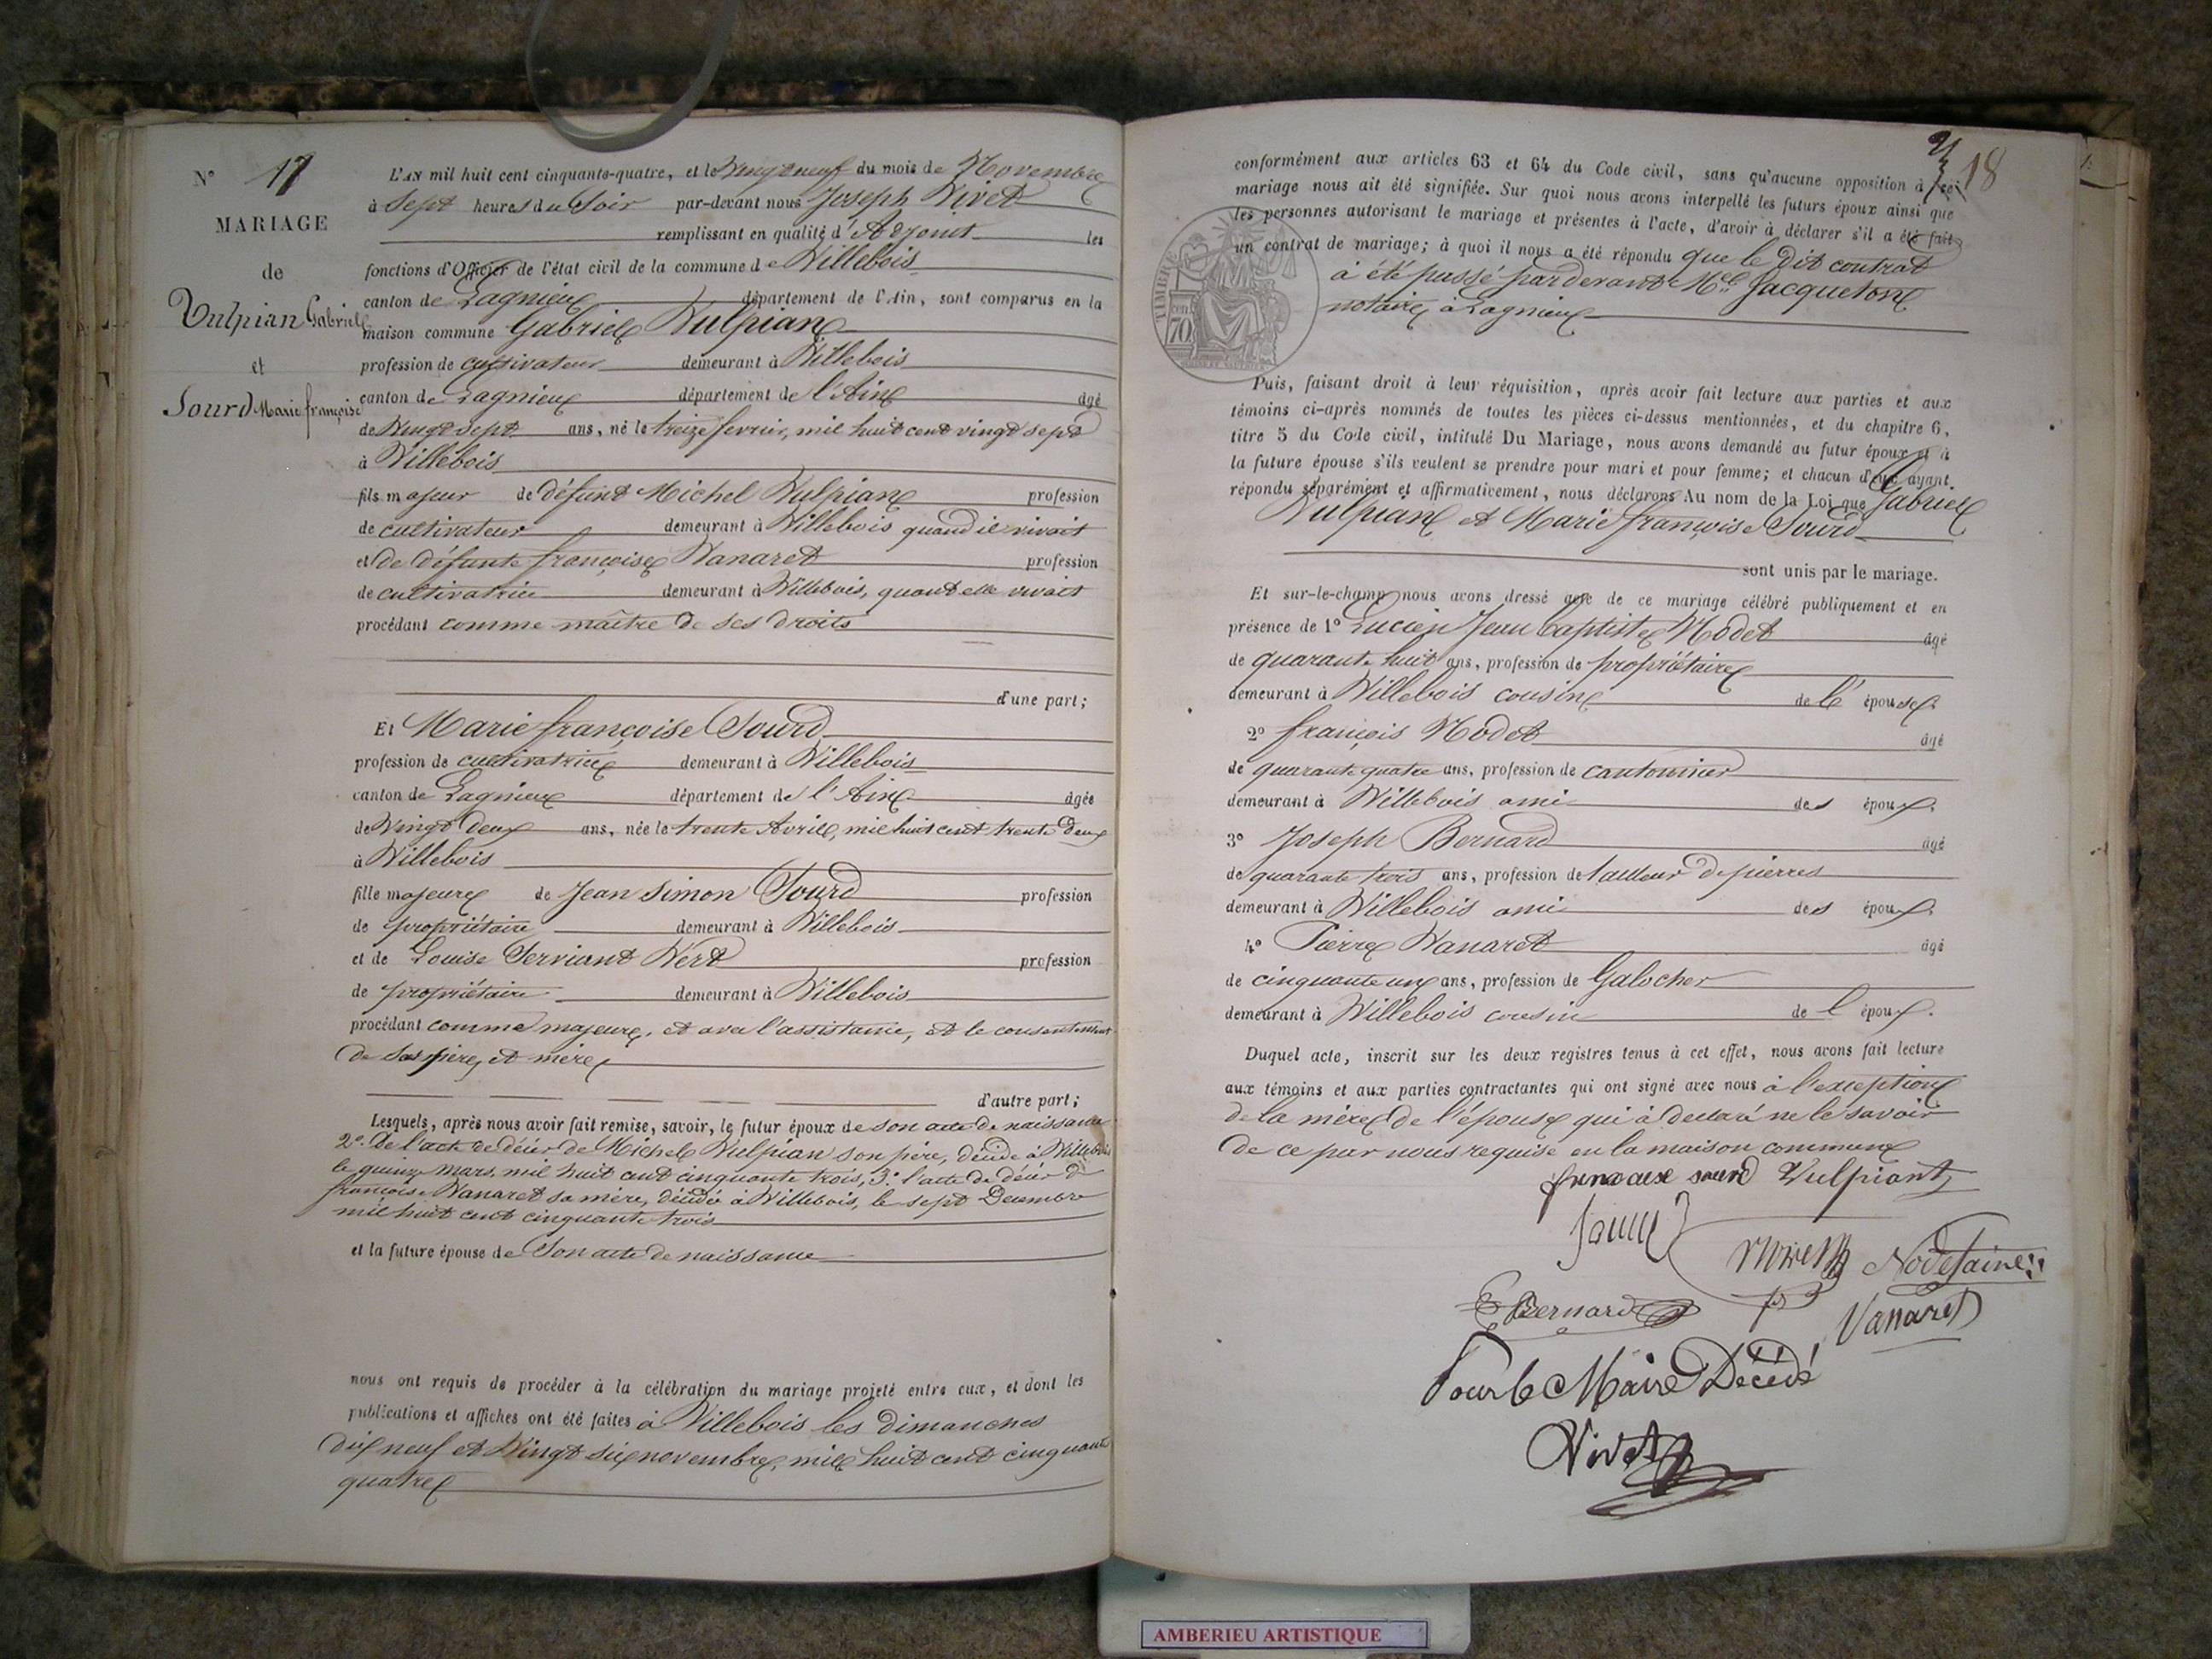 N° 17
MARIAGE
de
Vulpian Gabriel
et
Sourd Marie françoise
L'AN mil huit cent cinquante-quatre, et le Vingt neuf du mois de Novembre
à Sept heures du Soir par-devant nous Joseph Vivet
remplissant en qualité d'Adjoint les
fonctions d'Officier de l'état civil de la commune de Villebois
canton de Lagnieux département de l'Ain, sont comparus en la
maison commune Gabriel Vulpian
profession de cultivateur demeurant à Villebois
canton de Lagnieux département de l'Ain âgé
de Vingt sept ans, né le treize fevrier, mil huit cent vingt sept
à Villebois
fils majeur de défunt Michel Vulpian profession
de cultivateur demeurant à Villebois quand il vivait
et de défunte françoise Vanaret profession
de cultivatrice demeurant à Villebois, quand elle vivait
procédant comme maître de ses droits
d'une part;
Et Marie françoise Sourd
profession de cultivatrice demeurant à Villebois
canton de Lagnieux département de l'Ain âgée
de Vingt deux ans, née le trente Avril, mil huit cent trente deux
à Villebois
fille majeure de Jean Simon Sourd profession
de propriétaire demeurant à Villebois
et de Louise Serviant Vert profession
de propriétaire demeurant à Villebois
procédant comme majeure, et avec l'assistance, et le consentement
de ses père et mère
d'autre part;
Lesquels, après nous avoir fait remise, savoir, le futur époux de son acte de naissance
2°. De l'acte de décès de Michel Vulpian son père, décédé à Villebois
le quinze mars, mil huit cent cinquante trois, 3°. l'acte de décès de
françoise Vanaret sa mère, décédée à Villebois, le sept Décembre
mil huit cent cinquante trois
et la future épouse de Son acte de naissance
nous ont requis de procéder à la célébration du mariage projeté entre eux, et dont les
publications et affiches ont été faites à Villebois les dimanches
dix neuf et Vingt six novembre, mil huit cent cinquante
quatre
18
conformément aux articles 63 et 64 du Code civil, sans qu'aucune opposition à ce
mariage nous ait été signifiée. Sur quoi nous avons interpellé les futurs époux ainsi que
les personnes autorisant le mariage et présentes à l'acte, d'avoir à déclarer s'il a été fait
un contrat de mariage; à quoi il nous a été répondu que le dit contrat
à été passé pardevant Me Jacqueton
notaire à Lagnieux
TIMBRE
70
Puis, faisant droit à leur réquisition, après avoir fait lecture aux parties et aux
témoins ci-après nommés de toutes les pièces ci-dessus mentionnées, et du chapitre 6,
titre 5 du Code civil, intitulé Du Mariage, nous avons demandé au futur époux et à
la future épouse s'ils veulent se prendre pour mari et pour femme; et chacun d'eux ayant
répondu séparément et affirmativement, nous déclarons Au nom de la Loi que Gabriel
Vulpian et Marie françoise Sourd
sont unis par le mariage.
Et sur-le-champ nous avons dressé acte de ce mariage célébré publiquement et en
présence de 1° Lucien Jean baptiste Nodet âgé
de quarante huit ans, profession de propriétaire
demeurant à Villebois cousin de l' épouse
2° françois Nodet âgé
de quarante quatre ans, profession de cantonnier
demeurant à Villebois ami des époux.
3° Joseph Bernard âgé
de quarante trois ans, profession de tailleur de pierres
demeurant à Villebois ami des époux.
4° Pierre Vanaret âgé
de cinquante un ans, profession de Galocher
demeurant à Villebois cousin de l époux.
Duquel acte, inscrit sur les deux registres tenus à cet effet, nous avons fait lecture
aux témoins et aux parties contractantes qui ont signé avec nous à l'exception
de la mère de l'épouse qui à declaré ne le savoir
de ce par nous requise en la maison commune
Vulpiant
Bernard
Vanaret
Pour le Maire Décédé
Vivet
AMBERIEU ARTISTIQUE